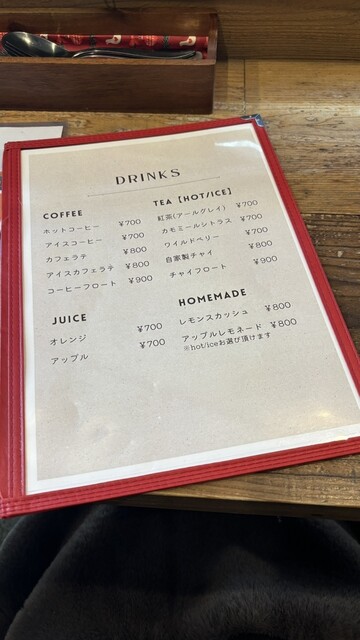 DRINKS
COFFEE
ホットコーヒー ¥700
アイスコーヒー ¥700
カフェラテ ¥800
アイスカフェラテ ¥800
コーヒーフロート ¥900
TEA【HOT/ICE】
紅茶(アールグレイ) ¥700
カモミールシトラス ¥700
ワイルドベリー ¥700
自家製チャイ ¥800
チャイフロート ¥900
JUICE
オレンジ ¥700
アップル ¥700
HOMEMADE
レモンスカッシュ ¥800
アップルレモネード ¥800
※hot/iceお選び頂けます